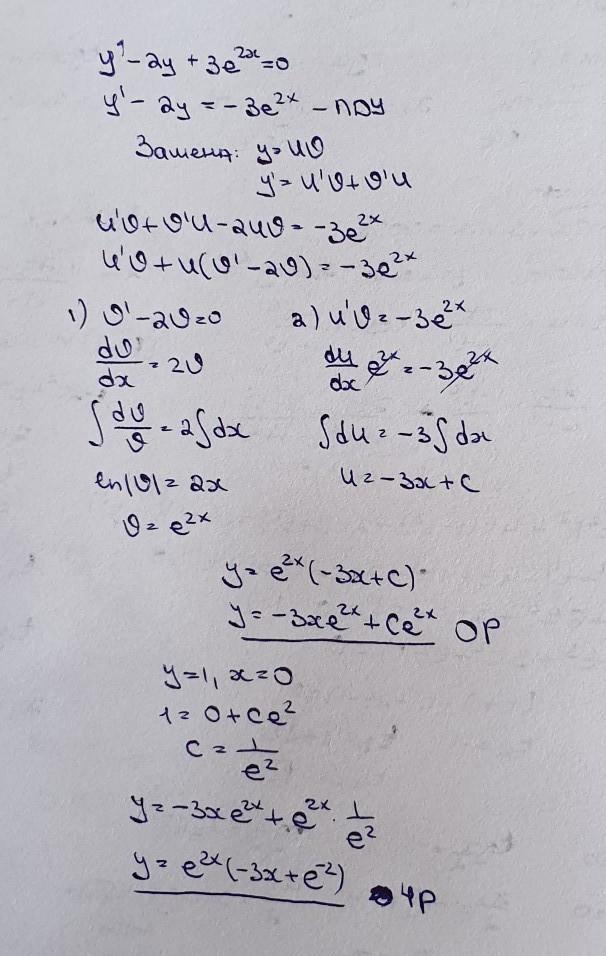 y' - 2y + 3e^{2x} = 0
y' - 2y = -3e^{2x} - ЛДУ
Замена: y = uϑ
y' = u'ϑ + ϑ'u
u'ϑ + ϑ'u - 2uϑ = -3e^{2x}
u'ϑ + u(ϑ' - 2ϑ) = -3e^{2x}
1) ϑ' - 2ϑ = 0
dϑ/dx = 2ϑ
∫ dϑ/ϑ = 2∫dx
ln|ϑ| = 2x
ϑ = e^{2x}
2) u'ϑ = -3e^{2x}
du/dx e^{2x} = -3e^{2x}
∫du = -3∫dx
u = -3x + C
y = e^{2x}(-3x + C)
y = -3xe^{2x} + Ce^{2x} ОР
y = 1, x = 0
1 = 0 + Ce^2
C = 1/e^2
y = -3xe^{2x} + e^{2x} · 1/e^2
y = e^{2x}(-3x + e^{-2}) ЧР